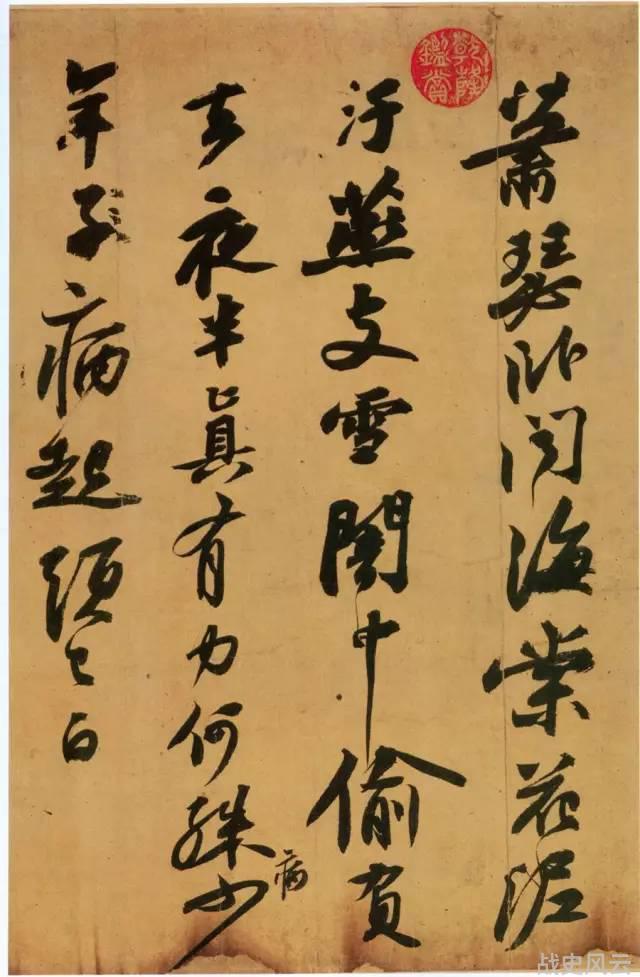 蕭瑟卧聞海棠花泥
汙燕支雪闇中偷負
去夜半真有力何殊少
病
年子病起須已白
乾隆鑑賞
战史风云